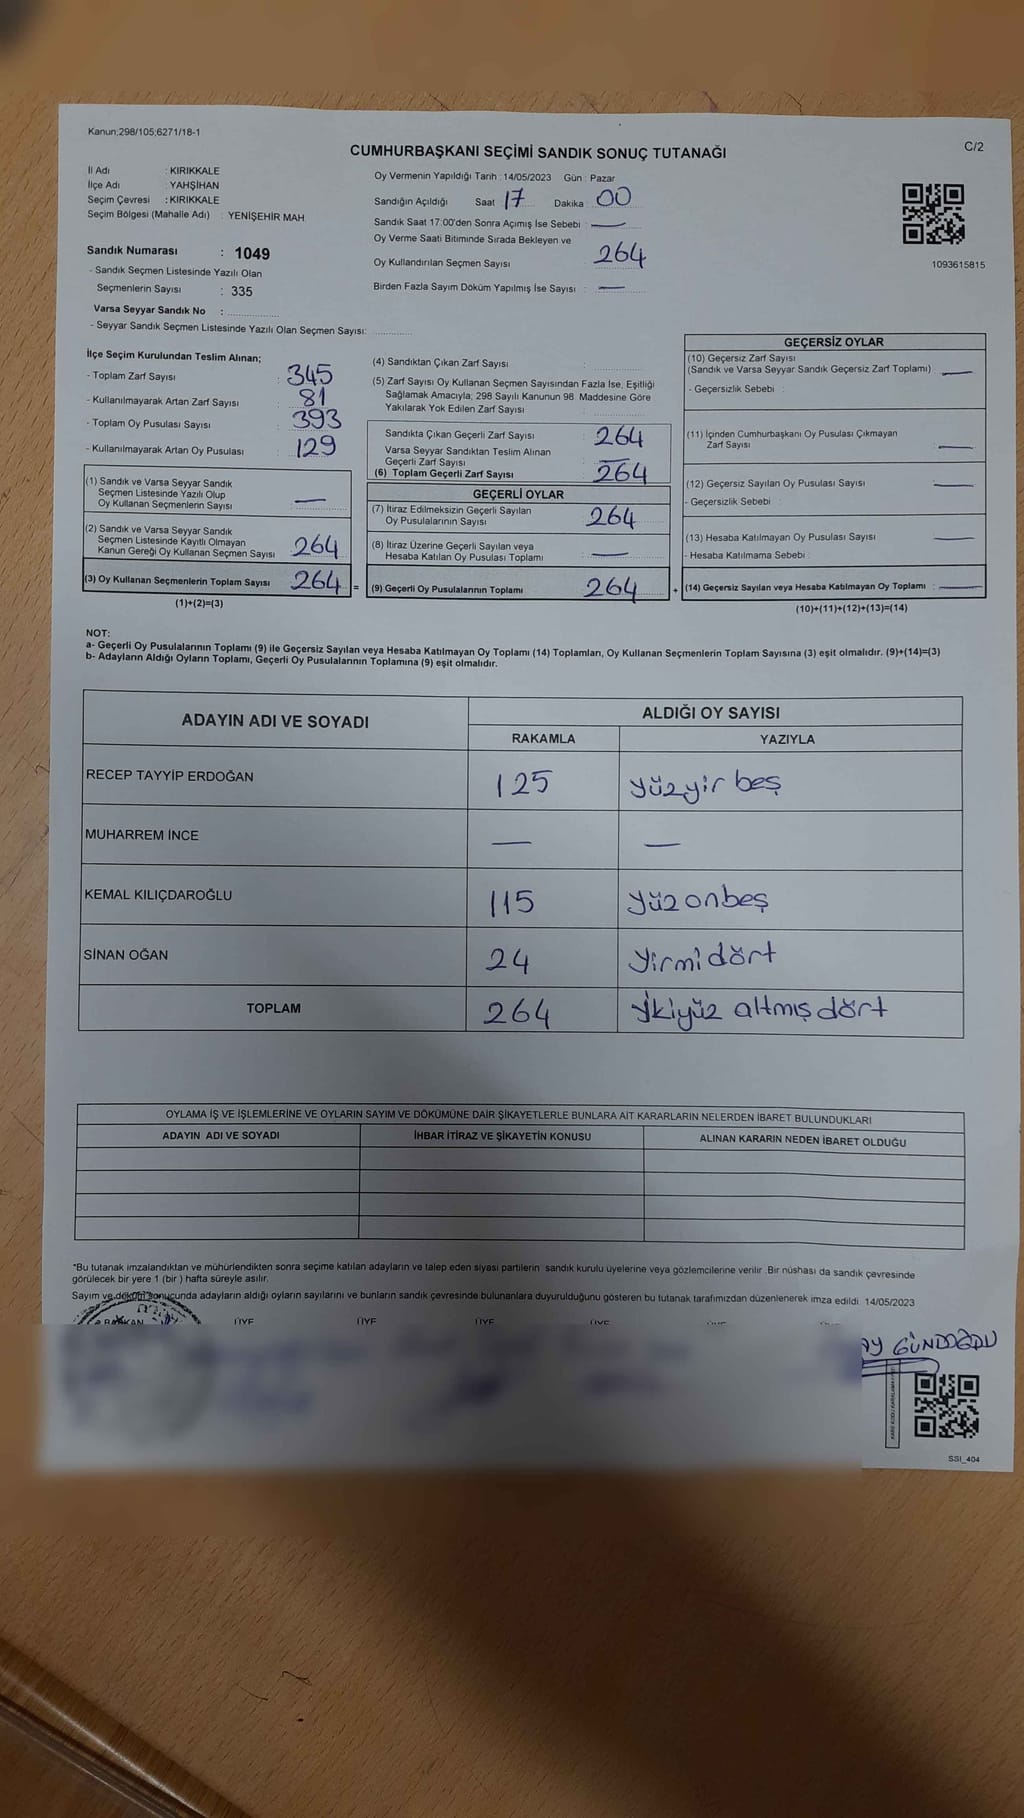 Kanun;298/105;6271/18-1
CUMHURBAŞKANI SEÇİMİ SANDIK SONUÇ TUTANAĞI
C/2
İl Adı : KIRIKKALE
İlçe Adı : YAHŞİHAN
Seçim Çevresi : KIRIKKALE
Seçim Bölgesi (Mahalle Adı) : YENİŞEHİR MAH
Sandık Numarası : 1049
- Sandık Seçmen Listesinde Yazılı Olan
Seçmenlerin Sayısı : 335
Varsa Seyyar Sandık No :
- Seyyar Sandık Seçmen Listesinde Yazılı Olan Seçmen Sayısı:
Oy Vermenin Yapıldığı Tarih : 14/05/2023 Gün : Pazar
Sandığın Açıldığı Saat 17 Dakika 00
Sandık Saat 17:00'den Sonra Açımış İse Sebebi : —
Oy Verme Saati Bitiminde Sırada Bekleyen ve
Oy Kullandırılan Seçmen Sayısı 264
Birden Fazla Sayım Döküm Yapılmış İse Sayısı : —
1093615815
İlçe Seçim Kurulundan Teslim Alınan;
- Toplam Zarf Sayısı : 345
- Kullanılmayarak Artan Zarf Sayısı : 81
- Toplam Oy Pusulası Sayısı : 393
- Kullanılmayarak Artan Oy Pusulası : 129
(1) Sandık ve Varsa Seyyar Sandık
Seçmen Listesinde Yazılı Olup
Oy Kullanan Seçmenlerin Sayısı : —
(2) Sandık ve Varsa Seyyar Sandık
Seçmen Listesinde Kayıtlı Olmayan
Kanun Gereği Oy Kullanan Seçmen Sayısı 264
(3) Oy Kullanan Seçmenlerin Toplam Sayısı 264 =
(1)+(2)=(3)
(4) Sandıktan Çıkan Zarf Sayısı :
(5) Zarf Sayısı Oy Kullanan Seçmen Sayısından Fazla İse, Eşitliği
Sağlamak Amacıyla; 298 Sayılı Kanunun 98. Maddesine Göre
Yakılarak Yok Edilen Zarf Sayısı :
Sandıkta Çıkan Geçerli Zarf Sayısı : 264
Varsa Seyyar Sandıktan Teslim Alınan
Geçerli Zarf Sayısı : —
(6) Toplam Geçerli Zarf Sayısı : 264
GEÇERLİ OYLAR
(7) İtiraz Edilmeksizin Geçerli Sayılan
Oy Pusulalarının Sayısı : 264
(8) İtiraz Üzerine Geçerli Sayılan veya
Hesaba Katılan Oy Pusulası Toplamı : —
(9) Geçerli Oy Pusulalarının Toplamı : 264 +
GEÇERSİZ OYLAR
(10) Geçersiz Zarf Sayısı
(Sandık ve Varsa Seyyar Sandık Geçersiz Zarf Toplamı) : —
- Geçersizlik Sebebi :
(11) İçinden Cumhurbaşkanı Oy Pusulası Çıkmayan
Zarf Sayısı : —
(12) Geçersiz Sayılan Oy Pusulası Sayısı : —
- Geçersizlik Sebebi :
(13) Hesaba Katılmayan Oy Pusulası Sayısı : —
- Hesaba Katılmama Sebebi :
(14) Geçersiz Sayılan veya Hesaba Katılmayan Oy Toplamı : —
(10)+(11)+(12)+(13)=(14)
NOT:
a- Geçerli Oy Pusulalarının Toplamı (9) ile Geçersiz Sayılan veya Hesaba Katılmayan Oy Toplamı (14) Toplamları, Oy Kullanan Seçmenlerin Toplam Sayısına (3) eşit olmalıdır. (9)+(14)=(3)
b- Adayların Aldığı Oyların Toplamı, Geçerli Oy Pusulalarının Toplamına (9) eşit olmalıdır.
ADAYIN ADI VE SOYADI ALDIĞI OY SAYISI
RAKAMLA YAZIYLA
RECEP TAYYİP ERDOĞAN 125 yüzyir beş
MUHARREM İNCE — —
KEMAL KILIÇDAROĞLU 115 yüzonbeş
SİNAN OĞAN 24 yirmidört
TOPLAM 264 ikiyüz altmış dört
OYLAMA İŞ VE İŞLEMLERİNE VE OYLARIN SAYIM VE DÖKÜMÜNE DAİR ŞİKAYETLERLE BUNLARA AİT KARARLARIN NELERDEN İBARET BULUNDUKLARI
ADAYIN ADI VE SOYADI İHBAR İTİRAZ VE ŞİKAYETİN KONUSU ALINAN KARARIN NEDEN İBARET OLDUĞU
*Bu tutanak imzalandıktan ve mühürlendikten sonra seçime katılan adayların ve talep eden siyasi partilerin sandık kurulu üyelerine veya gözlemcilerine verilir .Bir nüshası da sandık çevresinde
görülecek bir yere 1 (bir ) hafta süreyle asılır.
Sayım ve döküm sonucunda adayların aldığı oyların sayılarını ve bunların sandık çevresinde bulunanlara duyurulduğunu gösteren bu tutanak tarafımızdan düzenlenerek imza edildi. 14/05/2023
BAŞKAN ÜYE ÜYE ÜYE ÜYE
AY GÜNDOĞDU
SSI_404